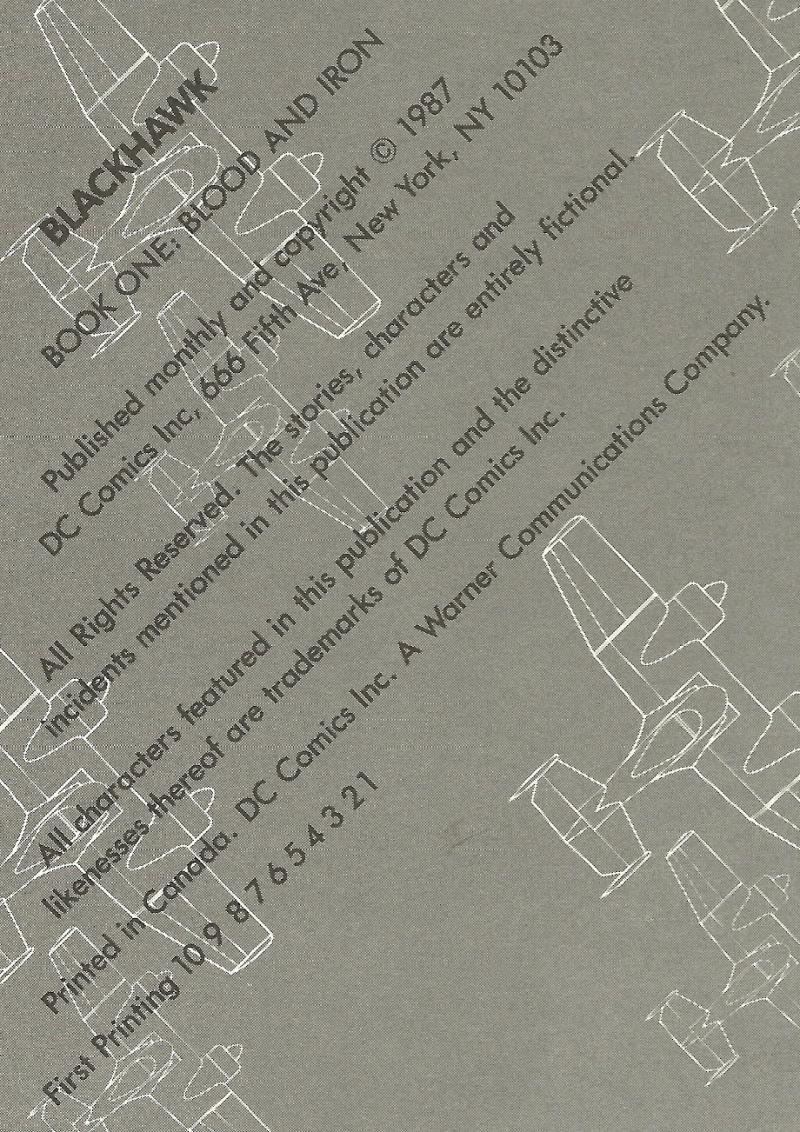 BLACKHAWK
BOOK ONE: BLOOD AND IRON
Published monthly and copyright © 1987
DC Comics Inc, 666 Fifth Ave, New York, NY 10103
All Rights Reserved. The stories, characters and
incidents mentioned in this publication are entirely fictional.
All characters featured in this publication and the distinctive
likenesses thereof are trademarks of DC Comics Inc.
Printed in Canada. DC Comics Inc. A Warner Communications Company.
First Printing 10 9 8 7 6 5 4 3 2 1